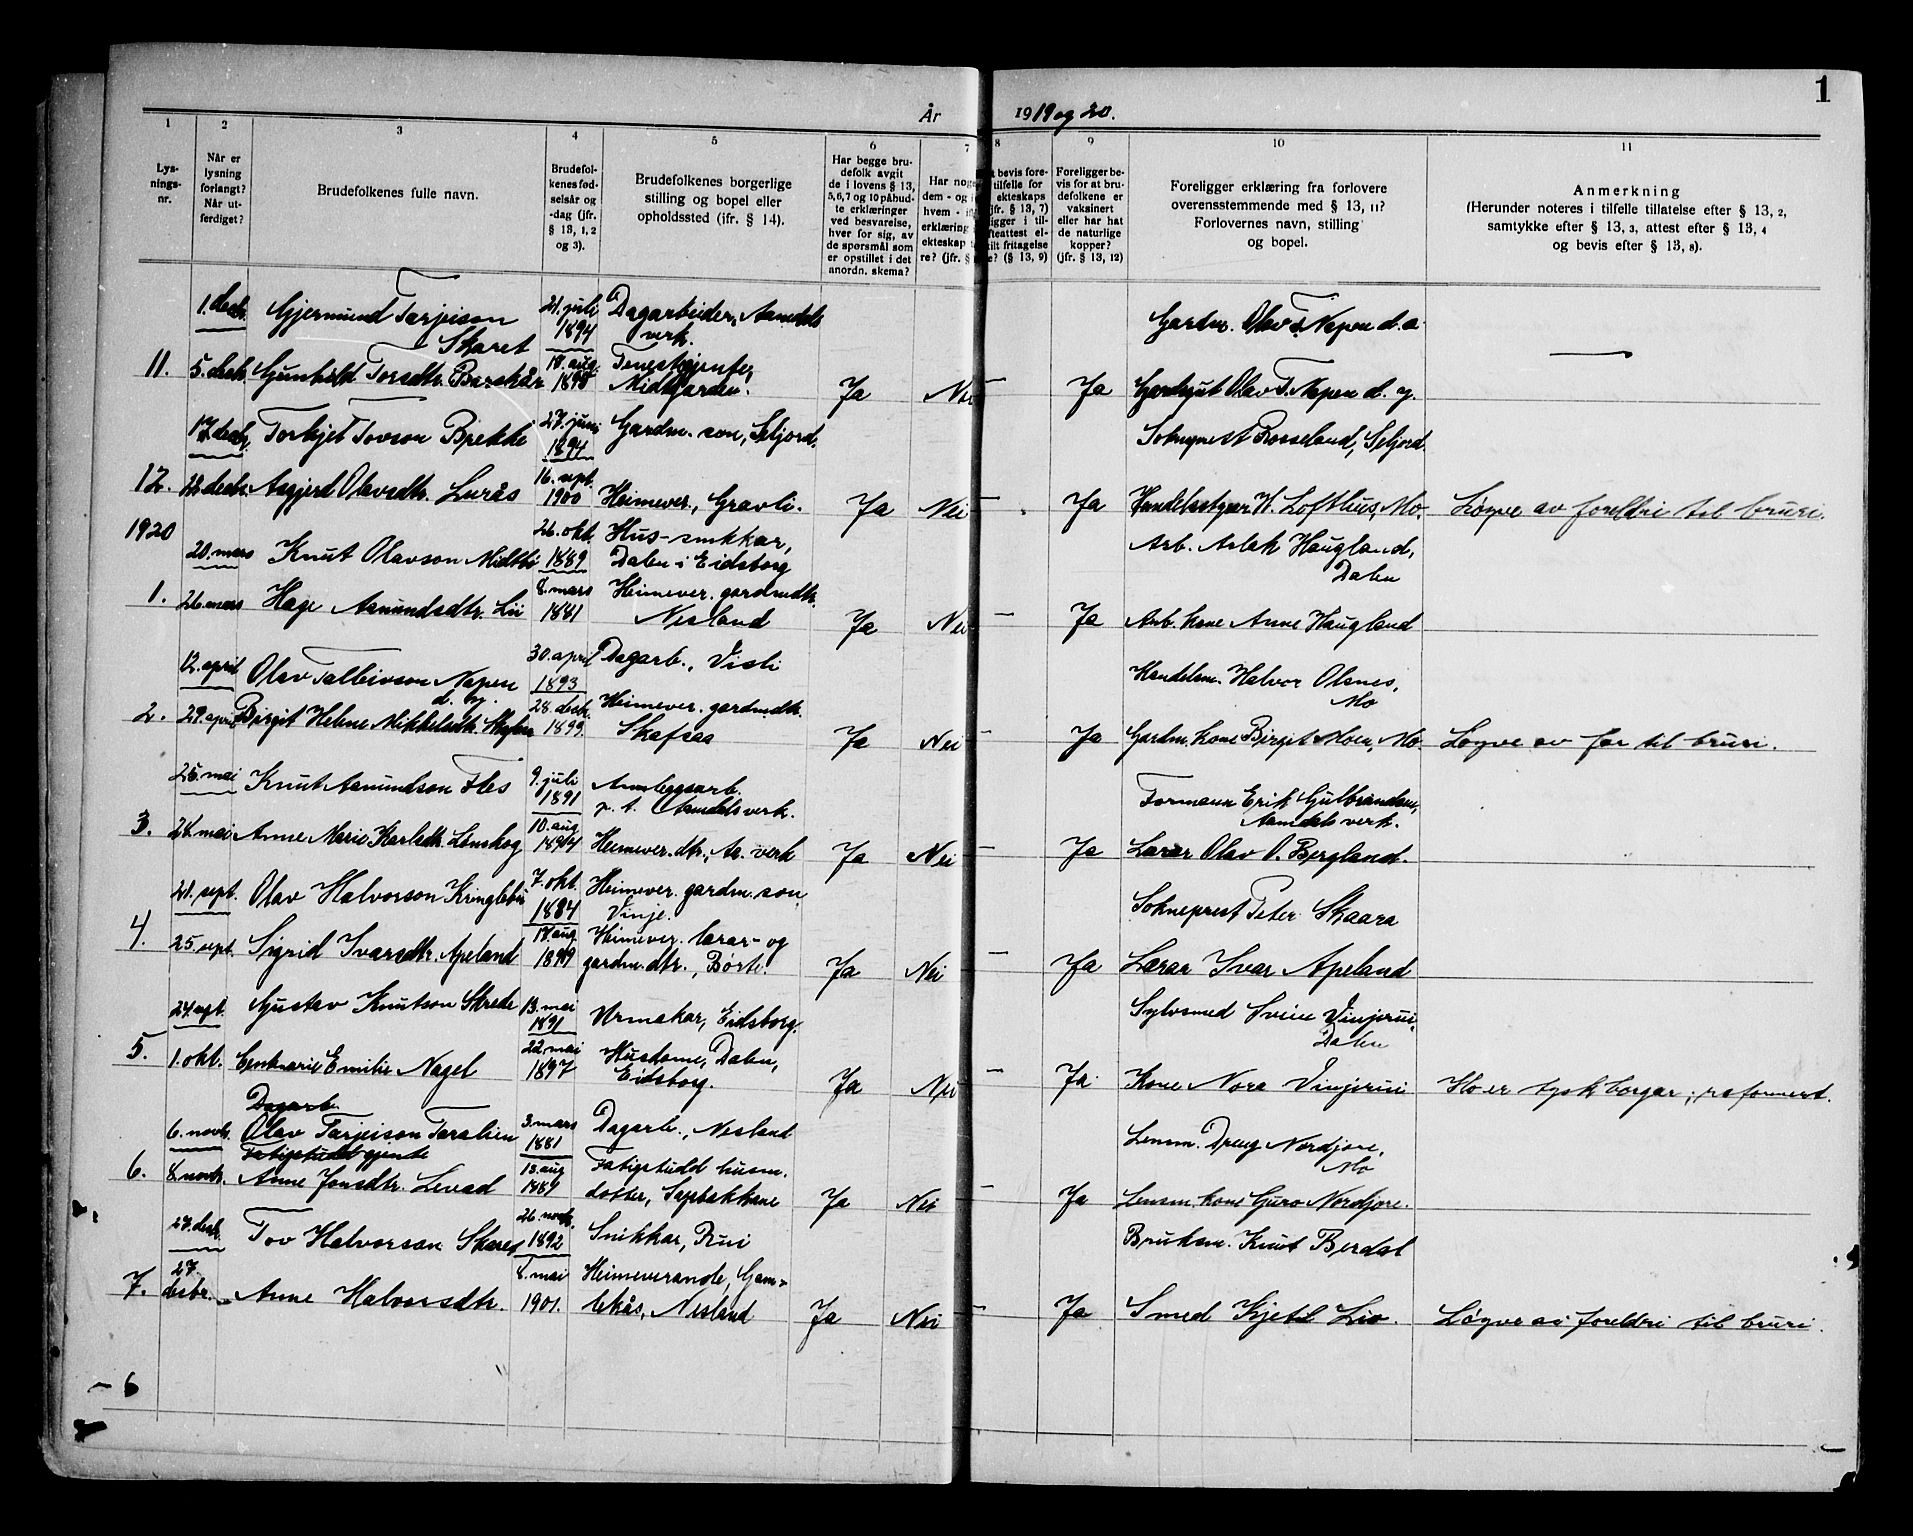 1
År 1919 og 20.
1 2 3 4 5 6 7 8 9 10 11
Lysnings-nr.
Når er lysning forlangt? Når utferdiget?
Brudefolkenes fulle navn.
Brudefolkenes fødselsår og -dag (jfr. § 13, 1, 2 og 3).
Brudefolkenes borgerlige stilling og bopel eller opholdssted (ifr. § 14).
Har begge brudefolk avgit de i lovens § 13, 5, 6, 7 og 10 påbudte erklæringer ved besvarelse, hver for sig, av de spørsmål som er opstillet i det anordn. skema?
Foreligger bevis for at brudefolkene er vaksinert eller har hat de naturlige kopper? (jfr. § 13, 12)
Foreligger erklæring fra forlovere overensstemmende med § 13, 11? Forlovernes navn, stilling og bopel.
Anmerkning
(Herunder noteres i tilfelle tillatelse efter § 13, 2, samtykke efter § 13, 3, attest efter § 13, 4 og bevis efter § 13, 8).
1. decbr. Gjermund Tarjeison Skaret 21. juli 1894 Dagarbeider, Aamdals verk. Gardm. Olav T. Napen d.a.
11. 5. decbr. Gunhild Torsdtr. Barskår 18. aug. 1898 Tenestgjente, Midtgarden. Ja Nei — Ja Olav T. Napen d. y. —
17. decbr. Torkjel Tovson Brekke 27. juni 1894 Gardm. son, Seljord. Rosseland, Seljord
12. 22. decbr. Aasgjerd Olavsdtr. Lurås 16. sept. 1900 Heimever., Gravli. Ja Nei — Ja Lofthus, Mo. Løyve av foreldri til bruri.
1920
20. mars Knut Olavson Midtbø 26. okt. 1889 Hus-snikkar, Dalen i Eidsborg Arb. Aslak Haugland, Dalen
1. 26. mars Hæge Asmundsdtr. Lii 8. mars 1881 Heimever. gardmdtr. Nesland Ja Nei — Ja Arb. kone Anne Haugland
12. april Olav Talleivson Napen d. y. 30. april 1893 Dagarb., Visli Handelsm. Halvor Olsnes, Mo
2. 29. april Birgit Helene Mikkelsdtr. 28. decbr. 1899. Heimever. gardmdtr. Skafsaa Ja Nei — Ja Gardm. kone Birgit Moen, Mo. Løyve av far til bruri.
25. mai Knut Aamundson Fles 9. juli 1891 Anleggsarb. p. t. Aamdals verk. Formann Erik Gulbrandsen, Aamdals verk.
3. 28. mai Anne Marie Karlsdtr. Lønskog 10. aug. 1894 Heimever. dtr., Aa. verk Ja Nei — Ja Lærar Olav O. Bergland.
21. sept. Olav Halvorson Kringlebu 7. okt. 1884 Heimever. gardm. son, Vinje. Sokneprest Peter Skaara
4. 25. sept. Sigrid Ivarsdtr. Apeland 18. aug. 1899 Heimever. lærar- og gardm. dtr., Børte. Ja Nei — Ja Lærar Ivar Apeland
24. sept. Gustav Knutson Skrede 13. mai 1891 Urmakar, Eidsborg. Sylvsmed Svein Vinjerui, Dalen
5. 1. okt. Emilie Nagel 22. mai 1897 Husdame, Dalen, Eidsborg. Ja Nei — Ja Kone Nora Vinjerui Ho er tysk borgar; reformert.
Dagarb.
6. novbr. Olav Tarjeison Taralien 3. mars 1881 Dagarb., Nesland Lensm. Dreng Nordjore, Mo
Fatigstudd gjente
6. 8. novbr. Anne Jonsdtr. Levad 13. aug 1889 Fatigstudd husm. dotter, Ja Nei — Ja Lensm. kone Guro Nordjore.
27. decbr. Tov Halvorson Skaret 26. novbr. 1892 Snikkar, Rui Bruksm. Knut Berdal
7. 27. desbr. Anne Halvorsdtr. 8. mai 1901. Heimeverande, Gamlekås, Nesland Ja Nei — Ja Smed Kjetil Lio. Løyve av foreldri til bruri.
– 6